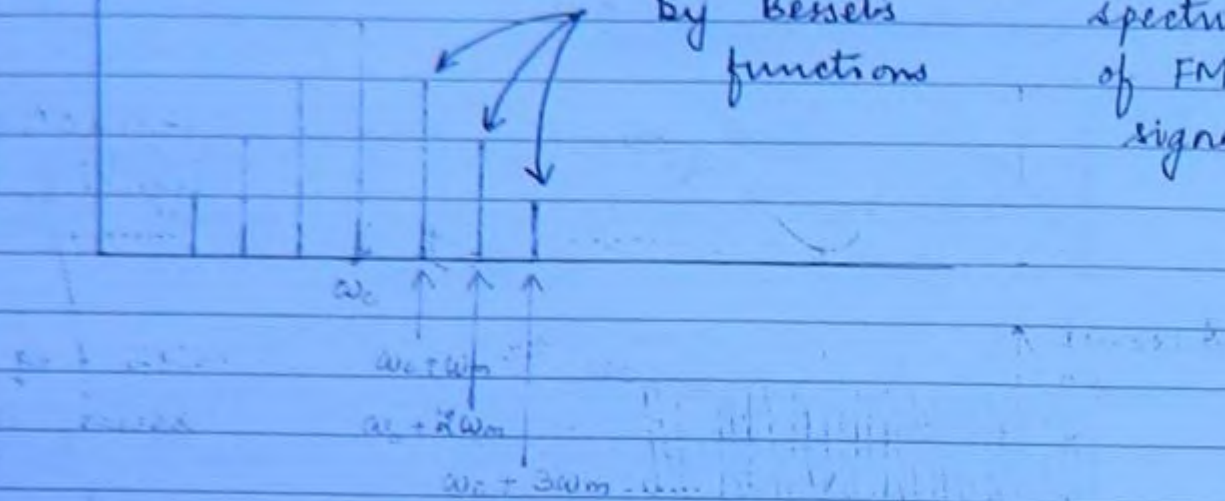 by Bessels
functions
spectru
of FM
signa
ωc
ωc + ωm
ωc + 2ωm
ωc + 3ωm ......